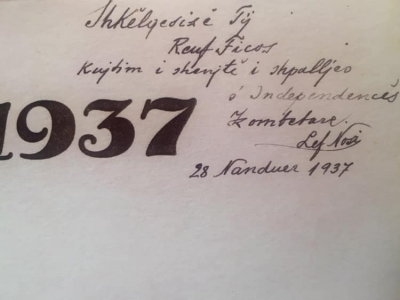 Shkëlqesisë Tij
Reuf Ficos
Kujtim i shenjtë i shpalljes
s' Independencës
Kombëtare.
Lef Nosi
28 Nanduer 1937
1937